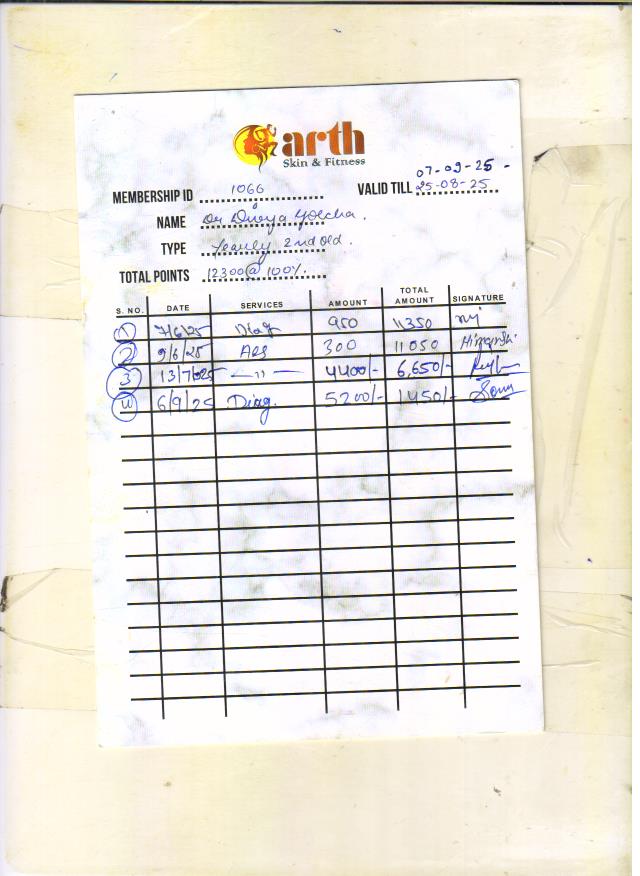 arth
Skin & Fitness
07-09-25 -
MEMBERSHIP ID 1066 VALID TILL 25-08-25
NAME Dr Divya
TYPE Yearly 2nd old.
TOTAL POINTS 12300 @ 100%.
S. NO. DATE SERVICES AMOUNT TOTAL AMOUNT SIGNATURE
1 7/6/25 Diag 950 11350
2 9/6/25 300 11050 Himanshi
3 13/7/2025 —11— 4400/- 6,650/-
4 6/9/25 Diag. 5200/- 1450/-